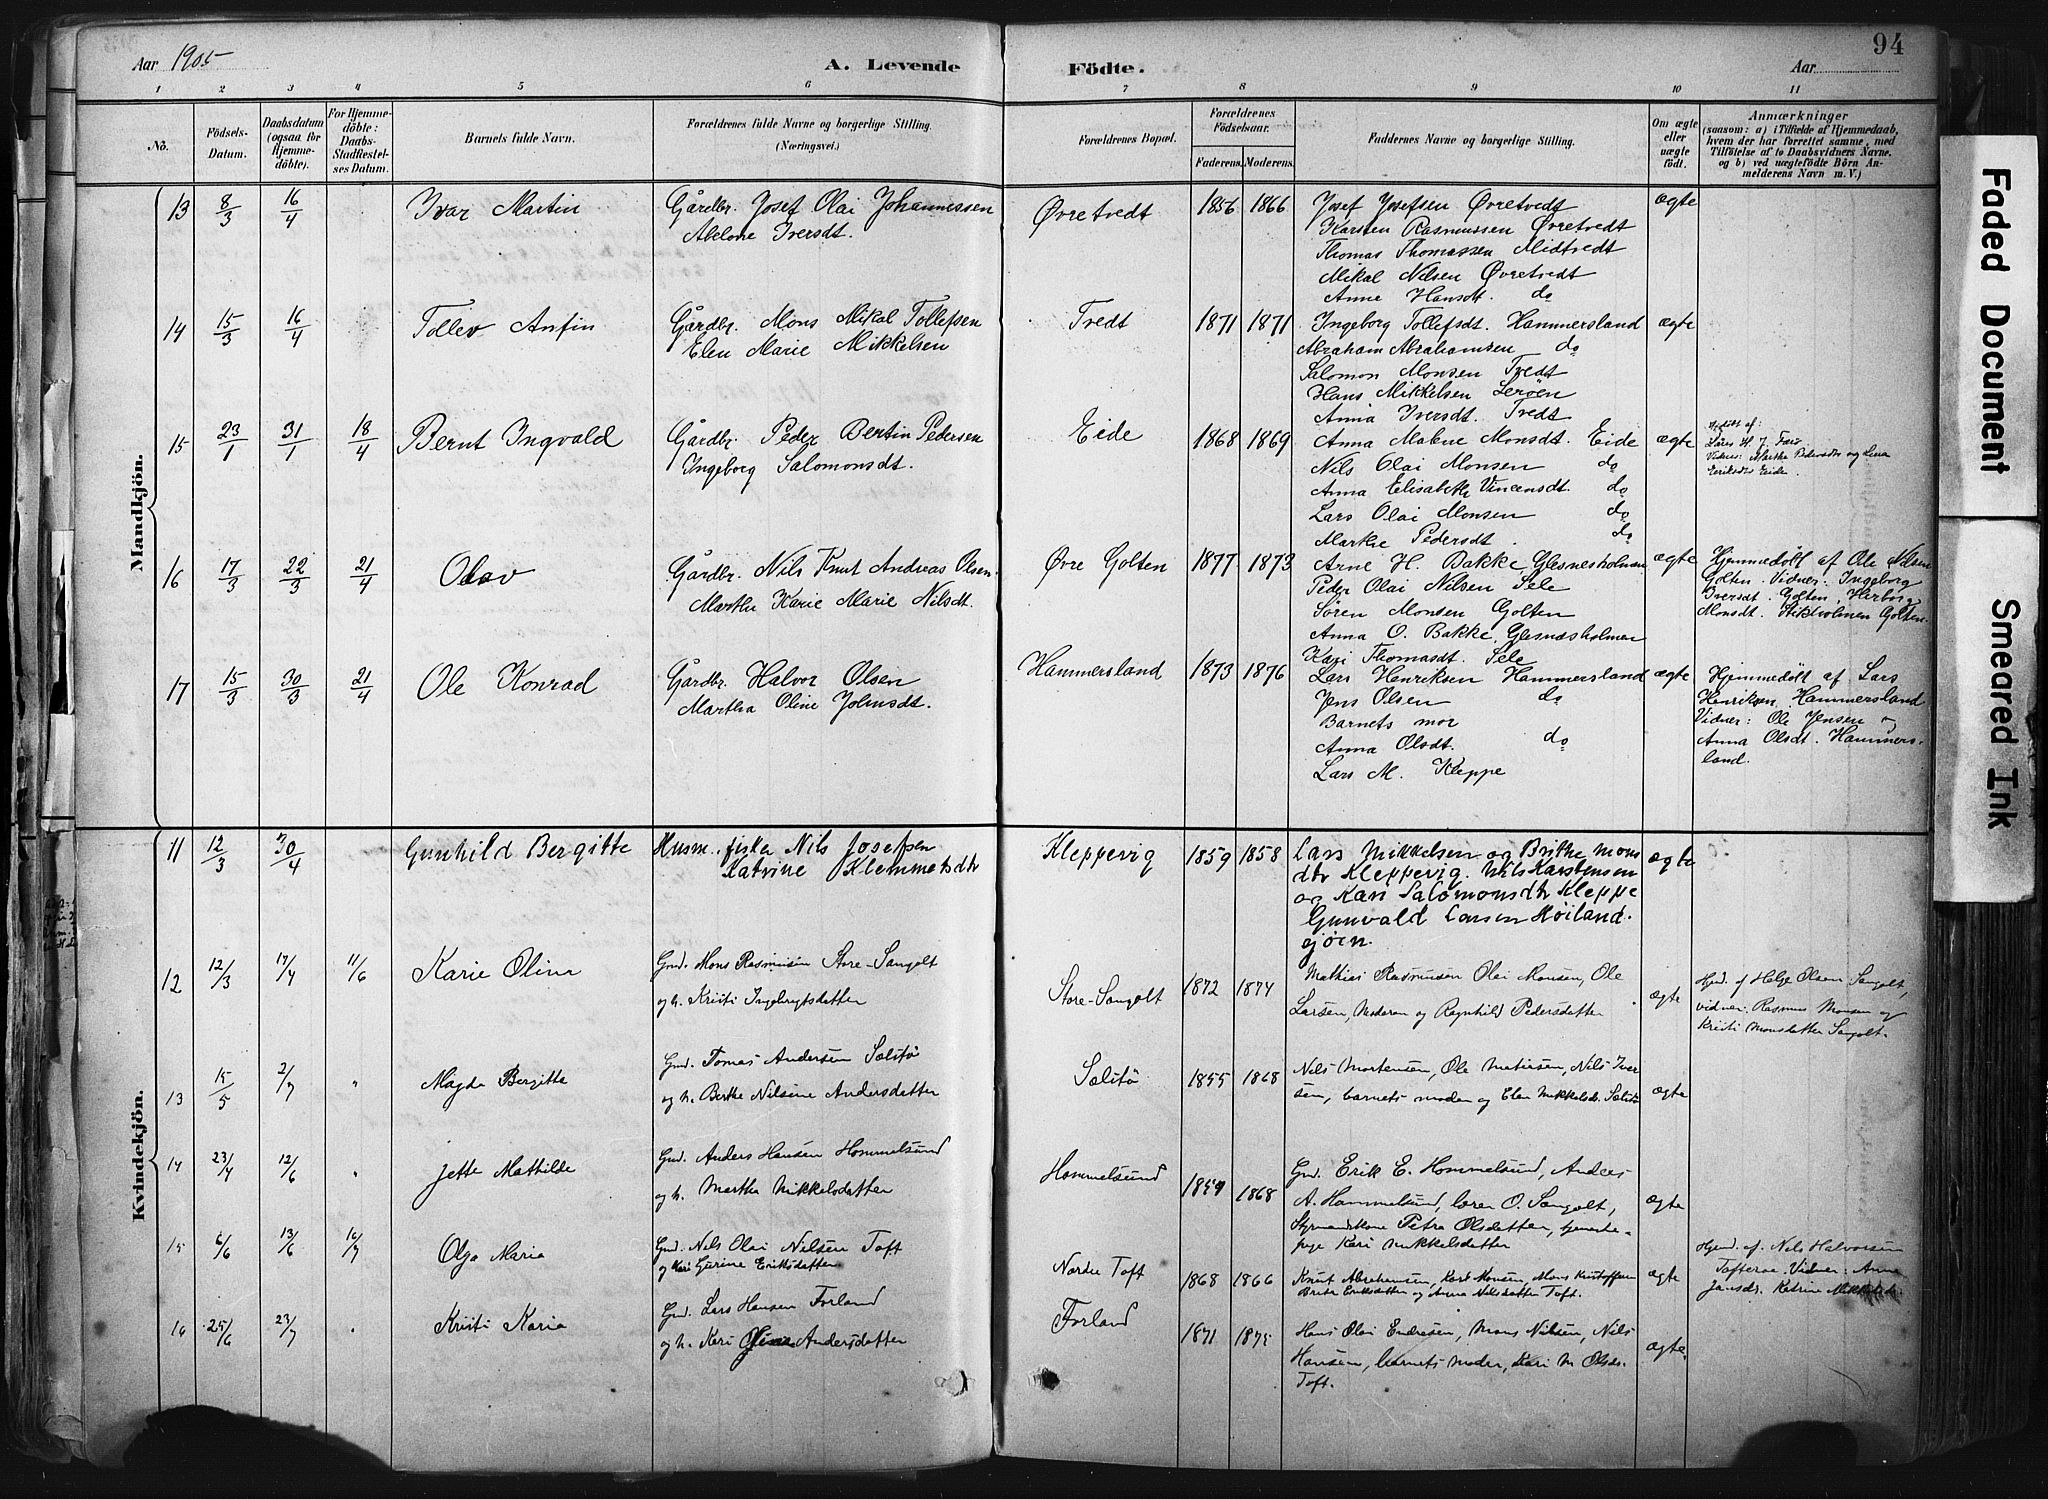 94
Aar 1905
A. Levende Födte.
Aar
1 2 3 4 5 6 7 8 9 10 11
No.
Födsels-Datum.
Daabsdatum (ogsaa for Hjemme-döbte).
For Hjemme-döbte: Daabs-Stadfæstel-ses Datum.
Barnets fulde Navn.
Forældrenes fulde Navne og borgerlige Stilling.
(Næringsvei.)
Forældrenes Bopæl.
Forældrenes Födselsaar.
Faderens. Moderens.
Faddernes Navne og borgerlige Stilling.
Om ægte eller uægte födt.
Anmærkninger
(saasom: a) i Tilfælde af Hjemmedaab,
hvem der har forrettet samme, med
Tilföielse af to Daabsvidners Navne,
og b) ved uægtefödte Börn An-
melderens Navn m. V.)
Mandkjön.
13 8/3 16/4 Ivar Martin
Gårdbr. Josef Olai Johannessen
Abelone Iversdt.
Øvretvedt 1856 1866
Josef Josefsen Øvretvedt
Karsten Rasmussen Øvretvedt
Thomas Thomassen Midtvedt
Mikal Nilsen Øvretvedt
Anne Hansdt. do
ægte
14 15/3 16/4 Tollev Anfin
Gårdbr. Mons Mikal Tollefsen
Elen Marie Mikkelsen
Tredt 1871 1871
Ingeborg Tollefsdt. Hammersland
Abraham Abrahamsen do
Salomon Monsen Tredt
Hans Mikkelsen Lerøen
Anna Iversdt. Tredt
ægte
15 23/1 31/1 18/4 Bernt Ingvald
Gårdbr. Peder Bertin Pedersen
Ingeborg Salomonsdt.
Eide 1868 1869
Anna Malene Monsdt. Eide
Nils Olai Monsen do
Anna Elisabeth Vincensdt. do
Lars Olai Monsen do
Marthe Pedersdt. do
ægte
Lars H. J.
Vidner: Marthe Pedersdt og Lina
Eriksdtr Eide.
16 17/3 22/3 21/4 Olav
Gårdbr. Nils Knut Andreas Olsen
Martha Karie Marie Nilsdt.
Øvre Golten 1877 1873
Arne H. Bakke, Glesnesholmen
Peder Olai Nilsen Sele
Søren Monsen Golten
Anna O. Bakke, Glesnæsholmen
Kari Thomasdt. Sele
ægte
Hjemmedøbt af Ole Nilsen
Golten. Vidner: Ingeborg
Iversdt. Golten, Herborg
Monsdt. Stikholmen Golten.
17 15/3 30/3 21/4 Ole Konrad
Gårdbr. Halvor Olsen
Martha Oline Johnsdt.
Hammersland 1873 1876
Lars Henriksen Hammersland
Jens Olsen do
Barnets mor
Anna Olsdt. do
Lars M. Kleppe
ægte
Hjemmedøbt af Lars
Henriksen, Hammersland
Vidner: Ole Jensen og
Anna Olsdt. Hammers-
land.
Kvindekjön.
11 12/3 30/4 Gunhild Bergitte
Husm. fisker Nils Josefsen
Katrine Klemmetsdtr
Kleppevig 1859 1858
Lars Mikkelsen og Brithe Mons
dtr Kleppevig. Nils Karstensen
og Kari Salomonsdtr Kleppe
Gunvald Larsen Høiland.
sjøen.
ægte
12 12/3 17/4 11/6 Karie Oline
Gmd. Mons Rasmusen Store-Sangolt
og h. Kristi Ingebrigtsdatter
Store-Sangolt 1872 1874
Mathias Rasmusen Olai Monsen, Ole
Larsen, Moderen og Ragnhild Pedersdatter
ægte
Hjmd. af Helge Olsen Sangolt,
vidner: Rasmus Monsen og
Kristi Monsdatter Sangolt.
13 15/5 2/7 " Magda Bergitte
Gmd. Tomas Andersen Solitø
og h. Berthe Nilsine Andersdatter
Solitø 1855 1868
Nils Mortensen, Ole Matiesen, Nils Iver
sen, barnets moder og Elen Mikkelsdr. Solitø
ægte
14 23/4 12/6 " Jette Mathilde
Gmd. Anders Hansen Hommelsund
og h. Martha Mikkelsdatter
Hommelsund 1859 1868
Gmd. Erik E. Hommelsund, Anders
A. Hommelsund, O. Sangolt,
Styrmandskone Petra Olsdatter, tjeneste-
pige Kari Mikkelsdatter
ægte
15 6/6 13/6 16/7 Olga Maria
Gmd. Nils Olai Nilsen Toft
og Kari Gurine Eriksdatter
Nordre Toft 1868 1866
Knut Abrahamsen, Karl Monsen, Mons Kristoffersen
Brita Eriksdatter og Anna Nilsdatter Toft.
ægte
Hjmd. af. Nils Halvorsen
Tofterøe. Vidner: Anna
Jansdr. Katrine Mikkelsdr.
16 25/6 23/7 " Kristi Karia
Gmd. Lars Hansen Forland
og h. Kari Oline Andersdatter
Forland 1871 1875
Hans Olai Endresen, Mons Nilsen, Nils
Hansen, barnets moder, Kari M. Olsdr.
Toft.
ægte.
Faded Document
Smeared Ink